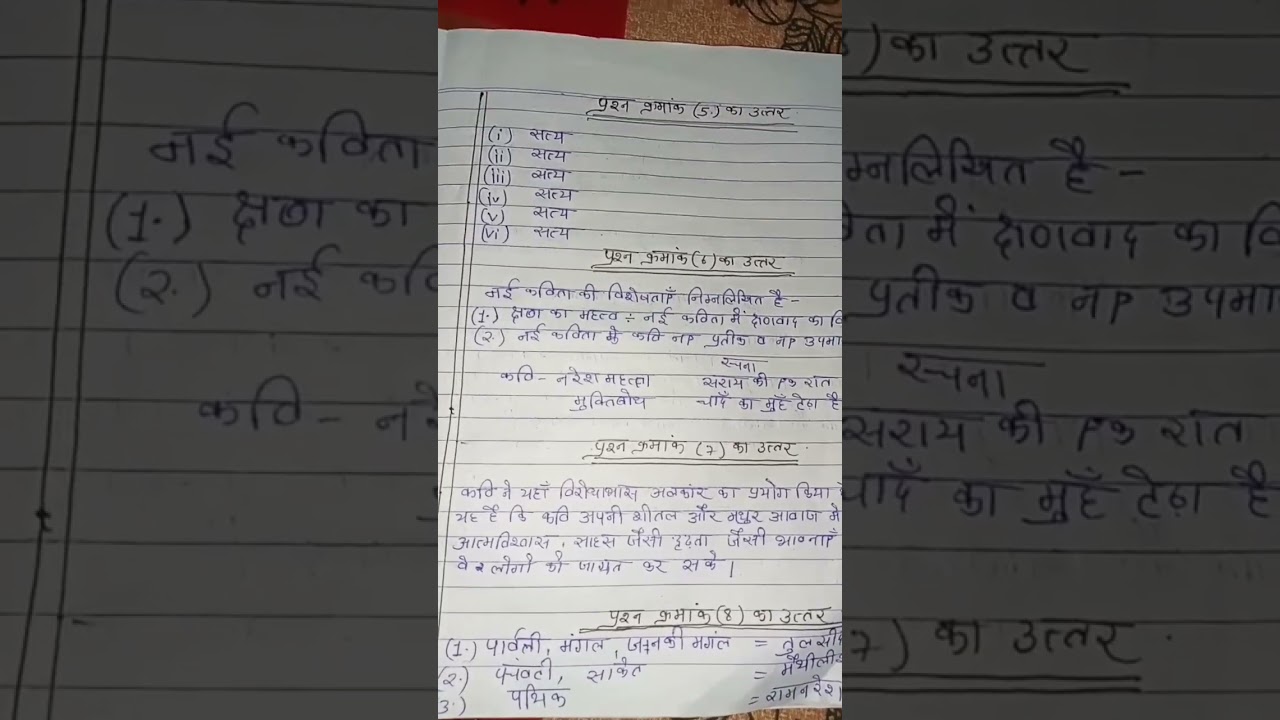 प्रश्न क्रमांक (5.) का उत्तर
(i) सत्य
(ii) सत्य
(iii) सत्य
(iv) सत्य
(v) सत्य
(vi) सत्य
प्रश्न क्रमांक (6) का उत्तर
नई कविता की विशेषताएँ निम्नलिखित है –
(1.) क्षण का महत्व ÷ नई कविता में क्षणवाद का वि
(2.) नई कविता में कवि नए प्रतीक व नए उपमा
रचना
कवि – नरेश महत्ता सराय की एक रात
मुक्तिबोध चाँद का मुहँ टेढ़ा है
प्रश्न क्रमांक (7) का उत्तर
कवि ने यहाँ विरोधाभास अलकांर का प्रयोग किया
यह है कि कवि अपनी शीतल और मधुर आवाज मे
आत्मविश्वास, साहस जैसी दृढ़ता जैसी भावनाएँ
वे लोगों को जाग्रत कर सके |
प्रश्न क्रमांक (8) का उत्तर
(1.) पार्वती, मंगल, जानकी मगंल = तुलसीद
(2.) पचंवटी, साकेत = मैथीली
3.) पथिक = रामनरेश